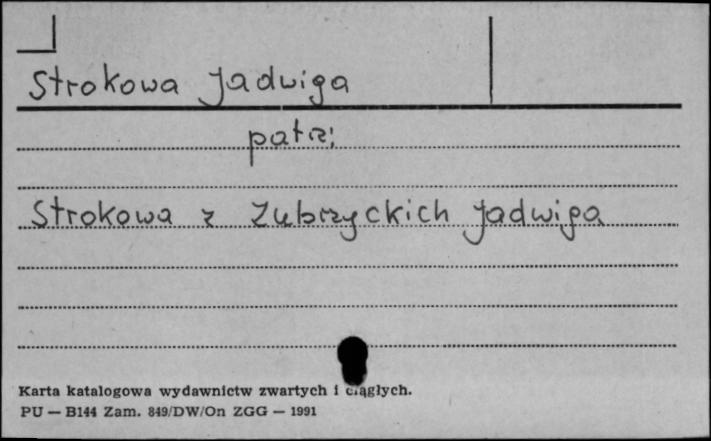 Strokowa Jadwiga
patrz:
Strokowa z Zubrzyckich Jadwiga
Karta katalogowa wydawnictw zwartych i ciągłych.
PU — B144 Zam. 849/DW/On ZGG — 1991